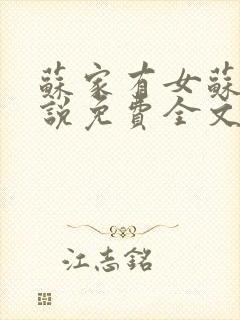 蘇家有女蘇
說免費全文
江志銘